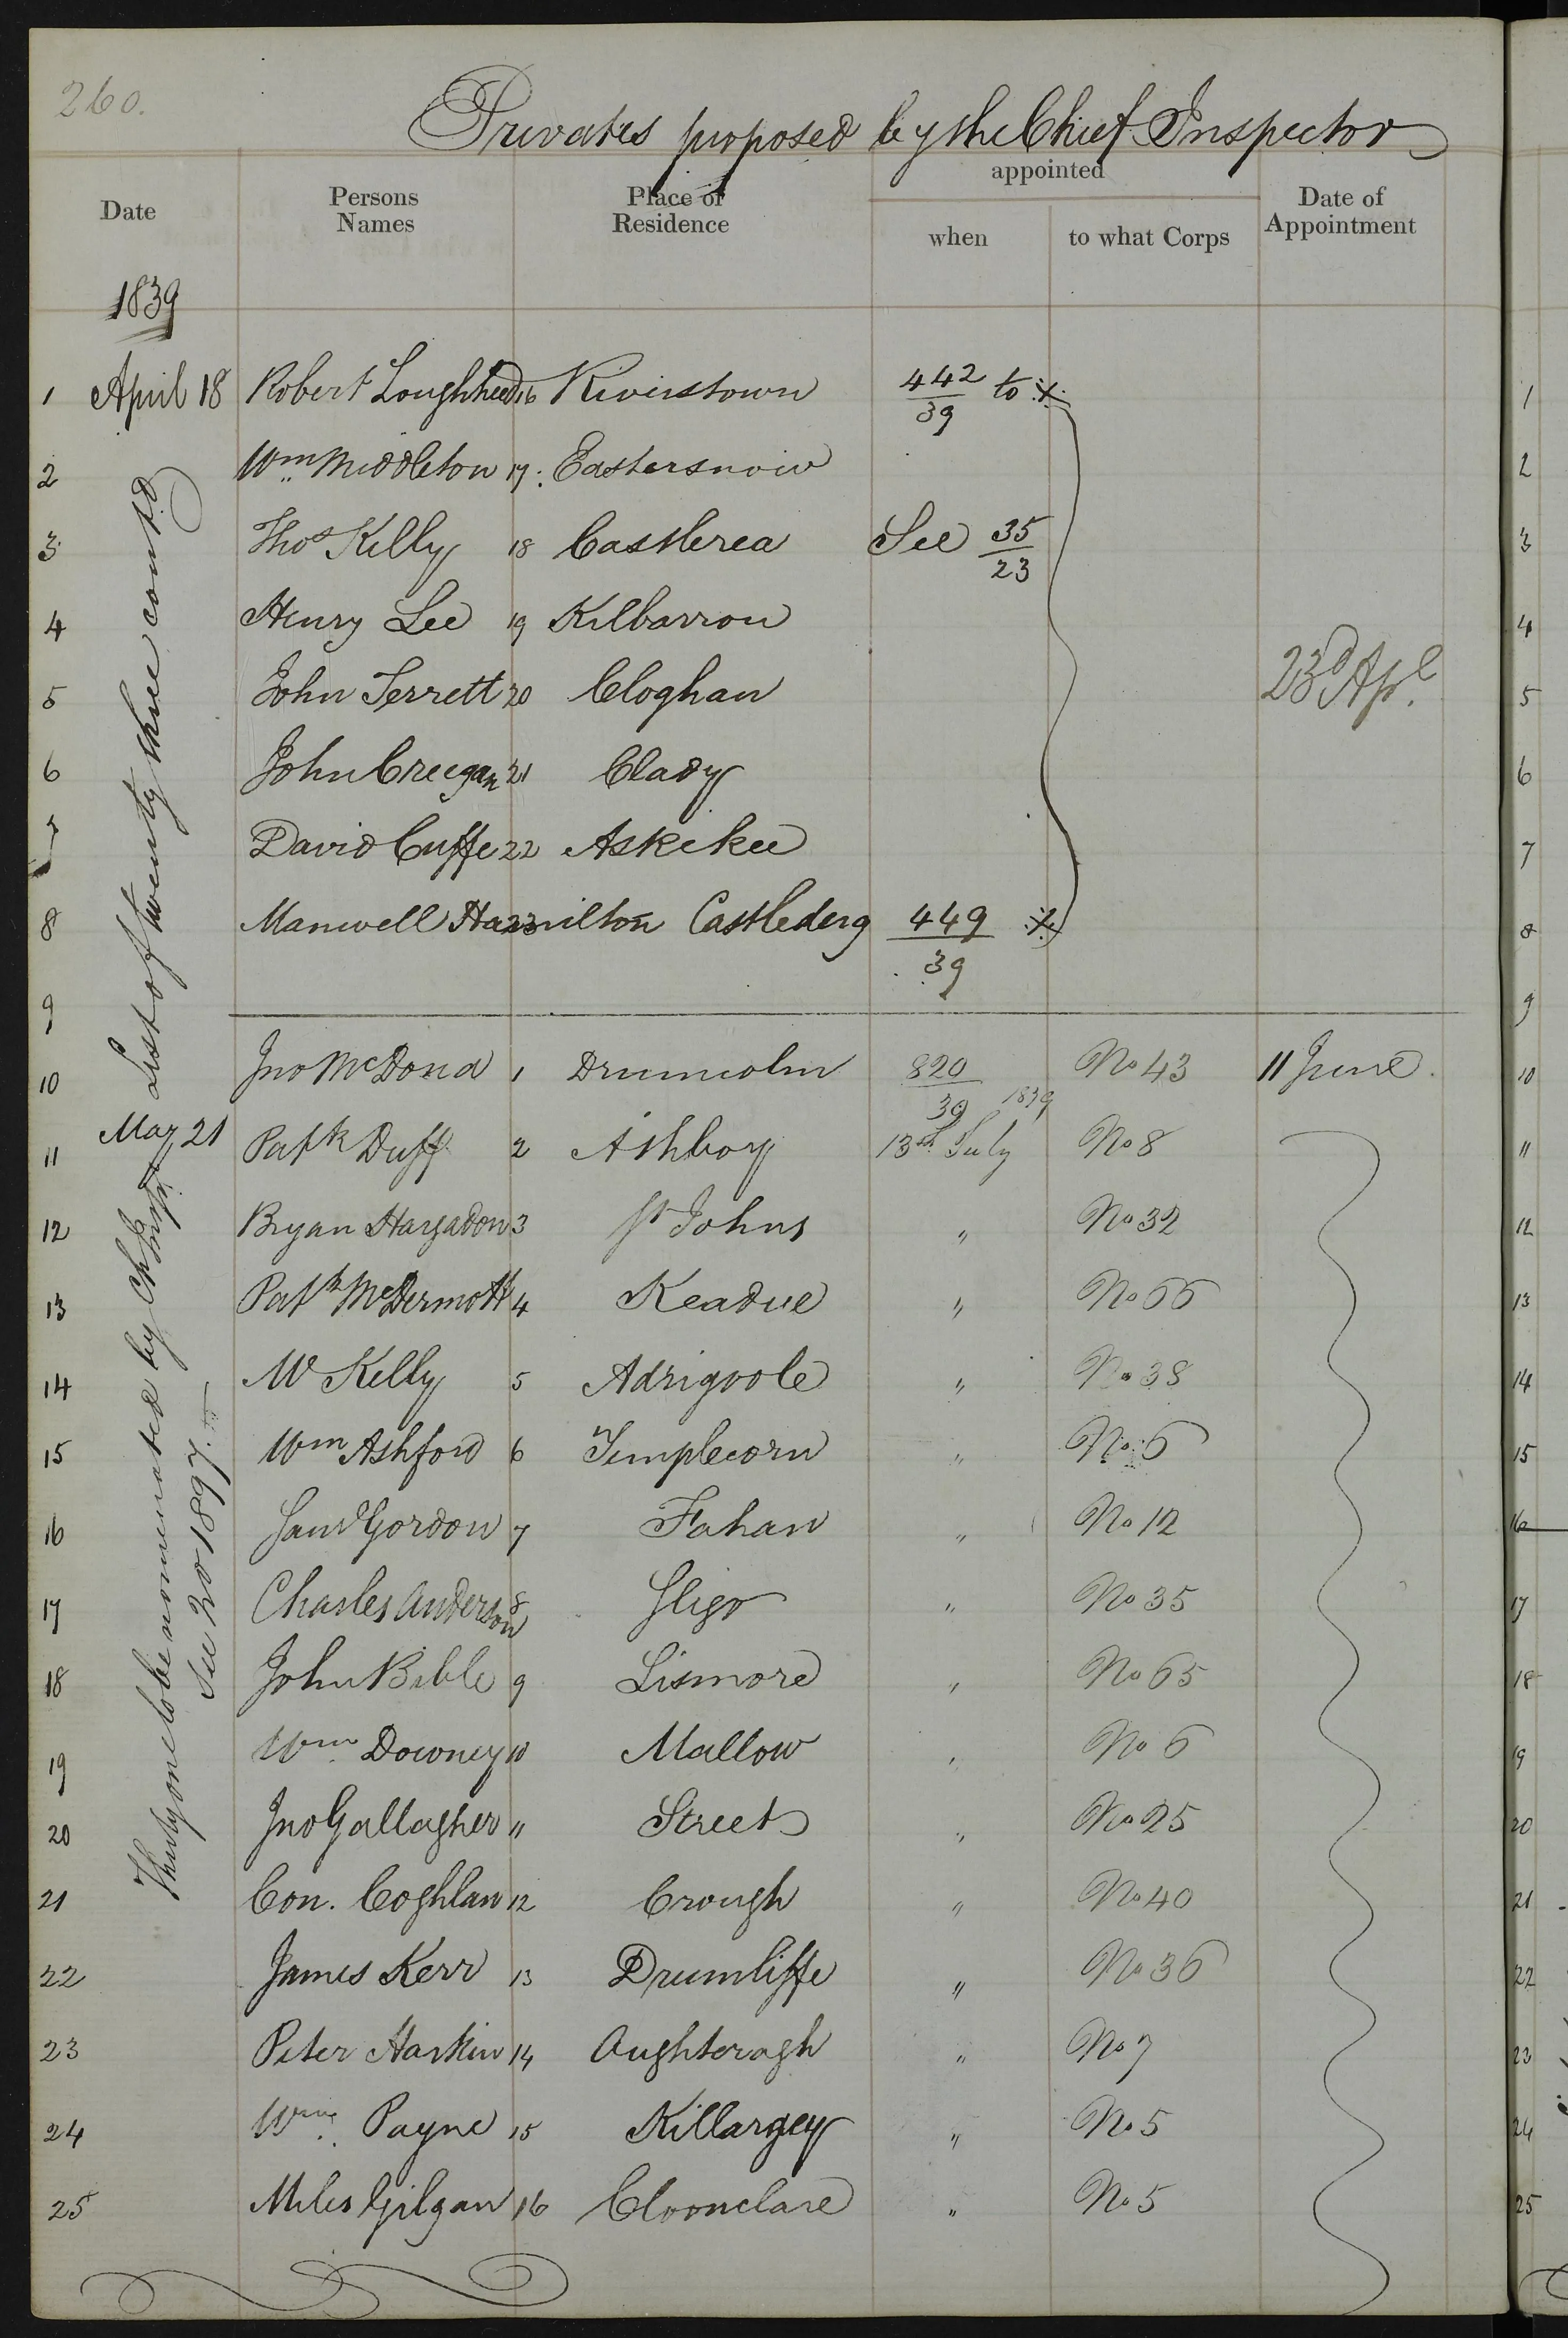 260.
Privates proposed by the Chief Inspector
Date
Persons Names
Place of Residence
appointed
when
to what Corps
Date of Appointment
1839
1 April 18 Robert Loughheed 16 Riverstown 442/39 to ※ 1
2 Wm Middleton 17 Eastersnow 2
3 Thos Kelly 18 Castlerea See 35/23 3
4 Henry Lee 19 Kilbarron 4
5 John Jerrett 20 Cloghan 23d Apl. 5
6 John Creegan 21 Clady 6
7 David Cuffe 22 Askekee 7
8 Manwell Hamilton 23 Castlederg 449/39 ※ 8
List of twenty three contd
9 9
10 Jno McDona 1 Drumcolm 820/39 No 43 11 June. 10
11 May 21 Patk Duff 2 Athboy 1839 13th July No 8 11
12 Bryan Hargadon 3 St Johns " No 32 12
13 Patk McDermott 4 Keadue " No 66 13
14 W Kelly 5 Adrigoole " No 38 14
15 Wm Ashford 6 Templecorn " No 6 15
16 Saml Gordon 7 Fahan " No 12 16
17 Charles Anderson 8 Sligo " No 35 17
18 John Bible 9 Lismore " No 65 18
19 Wm Downey 10 Mallow " No 6 19
20 Jno Gallagher 11 Street " No 25 20
21 Con. Coghlan 12 Crough " No 40 21
22 James Kerr 13 Drumliffe " No 36 22
23 Peter Harkin 14 Aughteragh " No 7 23
24 Wm Payne 15 Killargey " No 5 24
25 Miles Gilgan 16 Cloonclare " No 5 25
Thirty one to be nominated by Chf Inspr
See No 1897.